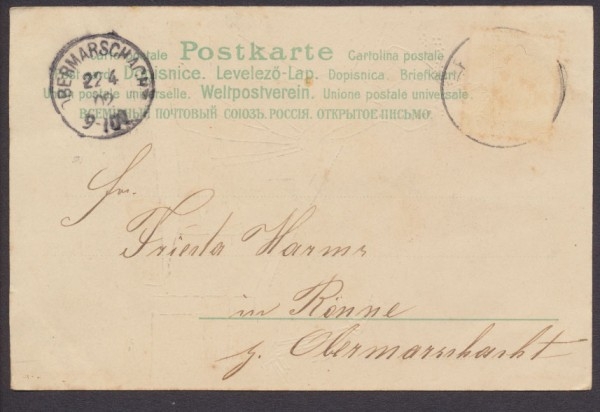 Carte postale Postkarte Cartolina postale
Dopisnice. Levelező-Lap. Dopisnica. Briefkaart
Union postale universelle. Weltpostverein. Unione postale universale.
ВСЕМІРНЫЙ ПОЧТОВЫЙ СОЮЗЪ. РОССІЯ. ОТКРЫТОЕ ПИСЬМО.
OBERMARSCHACHT
22 4
02
9-10V
Frieda Harms
in Rönne
z. Obermarschacht